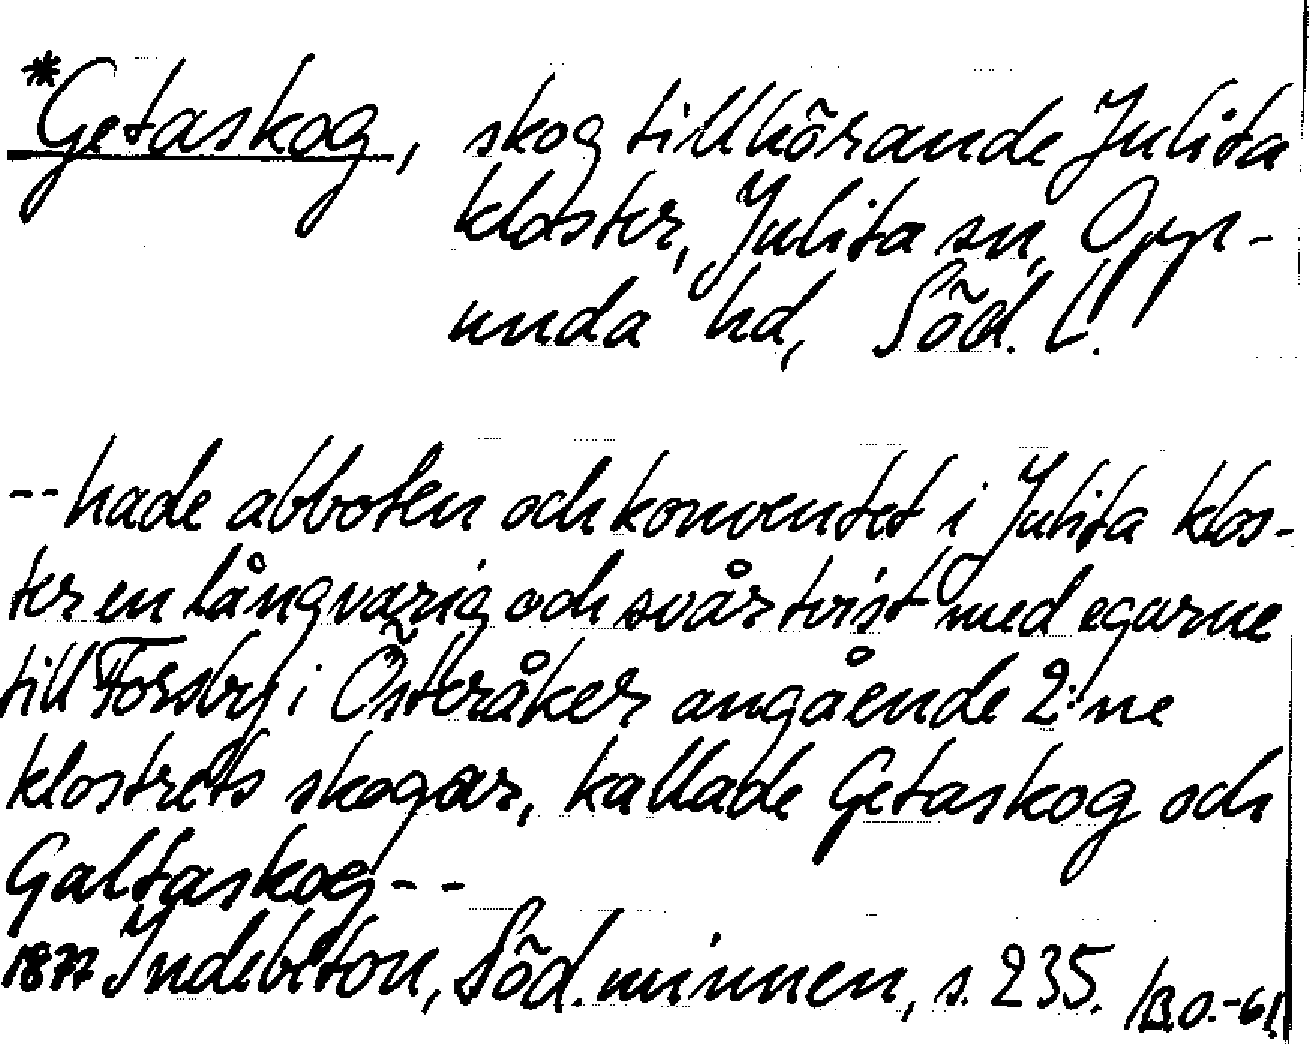 *Getaskog, skog tillhörande Julita
kloster, Julita sn, Opp-
unda hd, Söd. L.
-- hade abboten och konventet i Julita klos-
ter en långvarig och svår tvist med egarne
till Forsby i Österåker angående 2:ne
klostrets skogar, kallade Getaskog och
Galtaskog --
1877 Indebetou, Söd. minnen, s. 235. /B.O.-61.